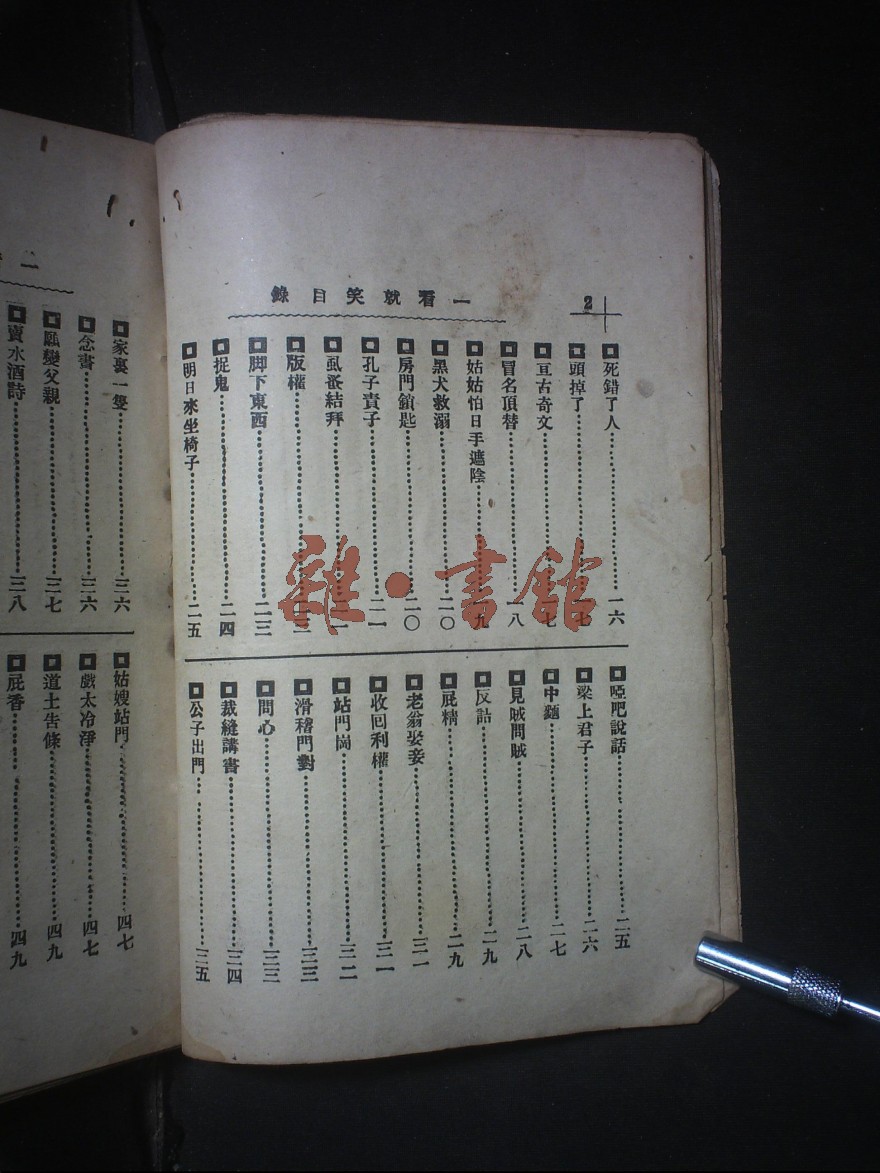 2
一看就笑目錄
死錯了人 一六
頭掉了 一七
亘古奇文 一七
冒名頂替 一八
姑姑怕日手遮陰 一九
黑犬救溺 二〇
房門鎖匙 二〇
孔子責子 二一
虱蚤結拜
版權
脚下東西 二三
捉鬼 二四
明日來坐椅子 二五
啞吧說話 二五
梁上君子 二六
中麵 二七
見賊問賊 二八
反詰 二九
屁精 二九
老翁娶妾 三一
收回利權 三一
站門崗 三二
滑稽門對 三三
問心 三三
裁縫講書 三四
公子出門 三五
一
家裏一隻 三六
念書 三六
願變父親 三七
賣水酒詩 三八
姑嫂站門 四七
戲太冷淨 四七
道士告條 四九
屁香 四九
雜·書館